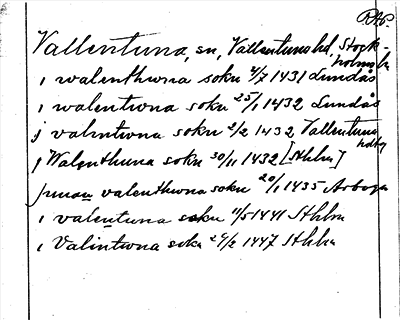 RAp.
Vallentuna, sn, Vallentuna hd, Stock-
holms län
i walenthwna sokn 4/7 1431 Lundås
i walentwna sokn 25/1 1432 Lundås
j valintwna sokn 2/2 1432 Vallentuna
hdtg
j Walenthuna sokn 30/11 1432 [Sthlm]
jnnan valenthwna sokn 20/1 1435 Arboga
i valentuna sokn 11/5 1441 Sthlm
i Valintwna sokn 24/2 1447 Sthlm